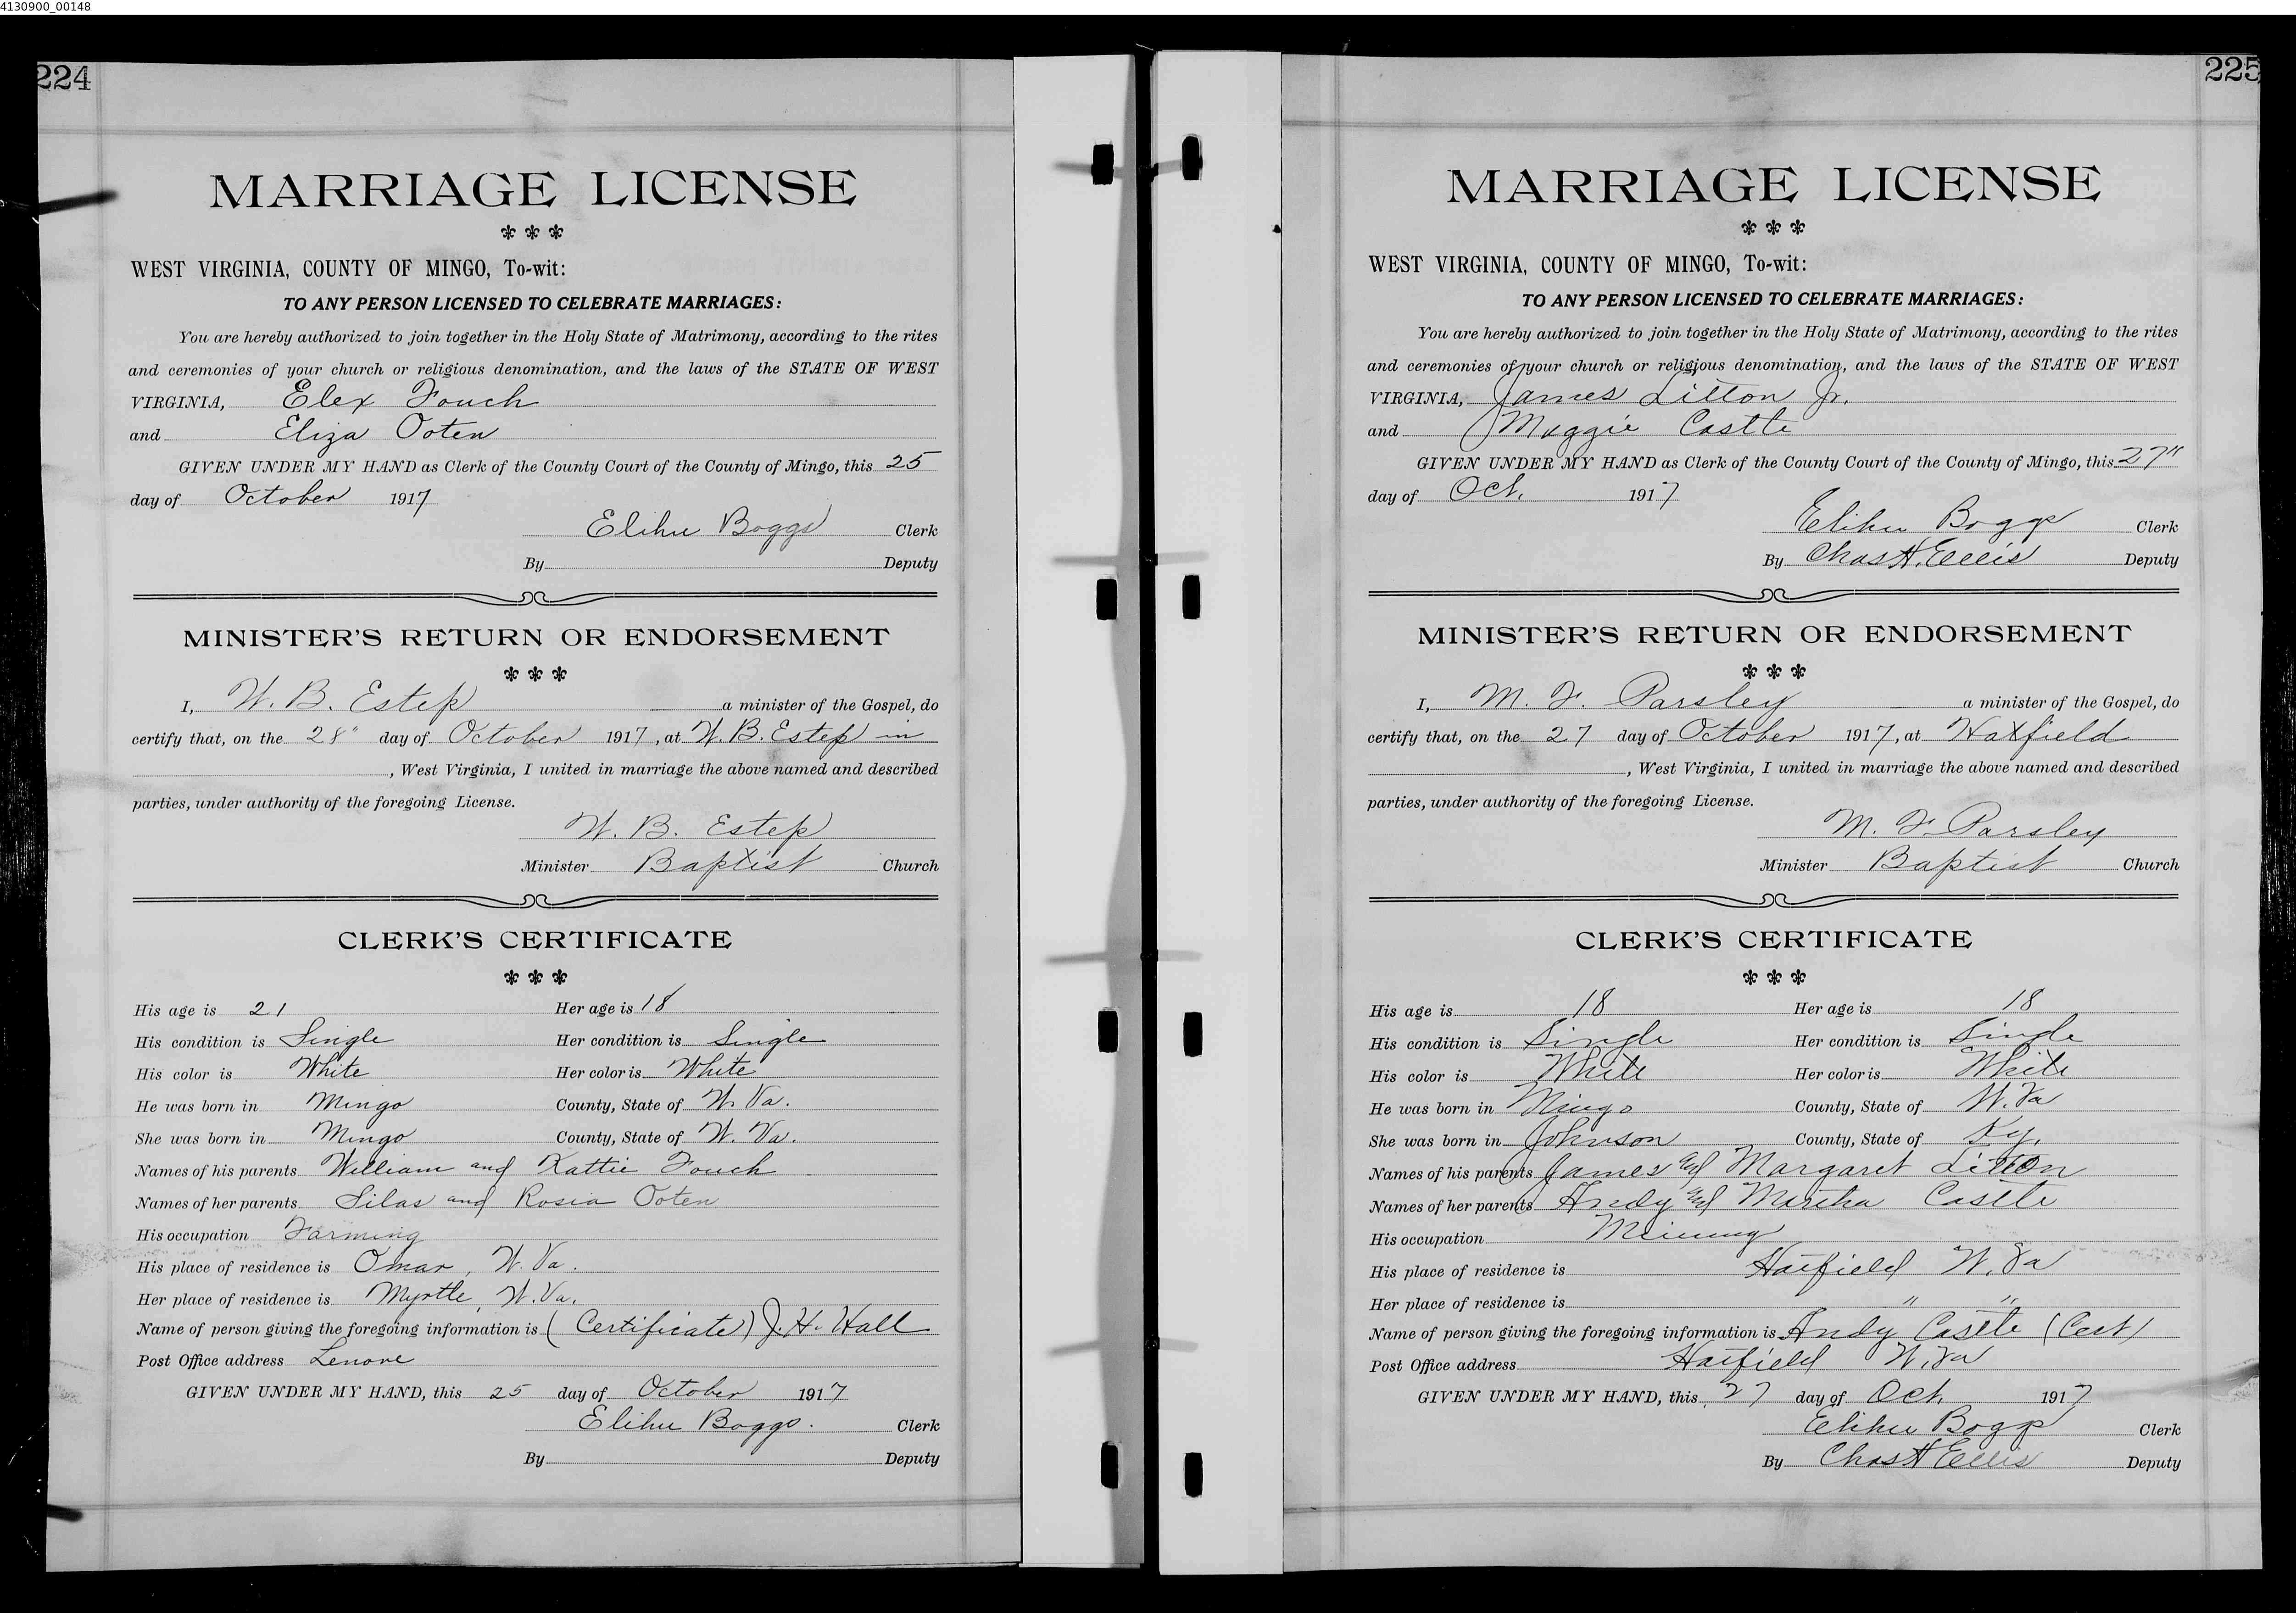 4130900_00148
224
MARRIAGE LICENSE
WEST VIRGINIA, COUNTY OF MINGO, To-wit:
TO ANY PERSON LICENSED TO CELEBRATE MARRIAGES:
You are hereby authorized to join together in the Holy State of Matrimony, according to the rites
and ceremonies of your church or religious denomination, and the laws of the STATE OF WEST
VIRGINIA, Elex Fouch
and Eliza Ooten
GIVEN UNDER MY HAND as Clerk of the County Court of the County of Mingo, this 25
day of October 1917
Elihu Boggs Clerk
By Deputy
MINISTER'S RETURN OR ENDORSEMENT
I, W. B. Estep a minister of the Gospel, do
certify that, on the 28" day of October 1917, at W. B. Estep in
, West Virginia, I united in marriage the above named and described
parties, under authority of the foregoing License.
W. B. Estep
Minister Baptist Church
CLERK'S CERTIFICATE
His age is 21 Her age is 18
His condition is Single Her condition is Single
His color is White Her color is White
He was born in Mingo County, State of W. Va.
She was born in Mingo County, State of W. Va.
Names of his parents William and Kattie Fouch
Names of her parents Silas and Rosia Ooten
His occupation Farming
His place of residence is Omar, W. Va.
Her place of residence is Myrtle, W. Va.
Name of person giving the foregoing information is (Certificate) J. H. Hall
Post Office address Lenore
GIVEN UNDER MY HAND, this 25 day of October 1917
Elihu Boggs. Clerk
By Deputy
225
MARRIAGE LICENSE
WEST VIRGINIA, COUNTY OF MINGO, To-wit:
TO ANY PERSON LICENSED TO CELEBRATE MARRIAGES:
You are hereby authorized to join together in the Holy State of Matrimony, according to the rites
and ceremonies of your church or religious denomination, and the laws of the STATE OF WEST
VIRGINIA, James Litton Jr.
and Maggie Castle
GIVEN UNDER MY HAND as Clerk of the County Court of the County of Mingo, this 27"
day of Oct. 1917
Elihu Boggs Clerk
By Chas H. Ellis Deputy
MINISTER'S RETURN OR ENDORSEMENT
I, M. F. Parsley a minister of the Gospel, do
certify that, on the 27 day of October 1917, at Hatfield
, West Virginia, I united in marriage the above named and described
parties, under authority of the foregoing License.
M. F. Parsley
Minister Baptist Church
CLERK'S CERTIFICATE
His age is 18 Her age is 18
His condition is Single Her condition is Single
His color is White Her color is White
He was born in Mingo County, State of W. Va
She was born in Johnson County, State of Ky.
Names of his parents James and Margaret Litton
Names of her parents Andy and Martha Castle
His occupation Mining
His place of residence is Hatfield W. Va
Her place of residence is " "
Name of person giving the foregoing information is Andy Castle (Cert)
Post Office address Hatfield W. Va
GIVEN UNDER MY HAND, this 27 day of Oct. 1917
Elihu Boggs Clerk
By Chas H Ellis Deputy